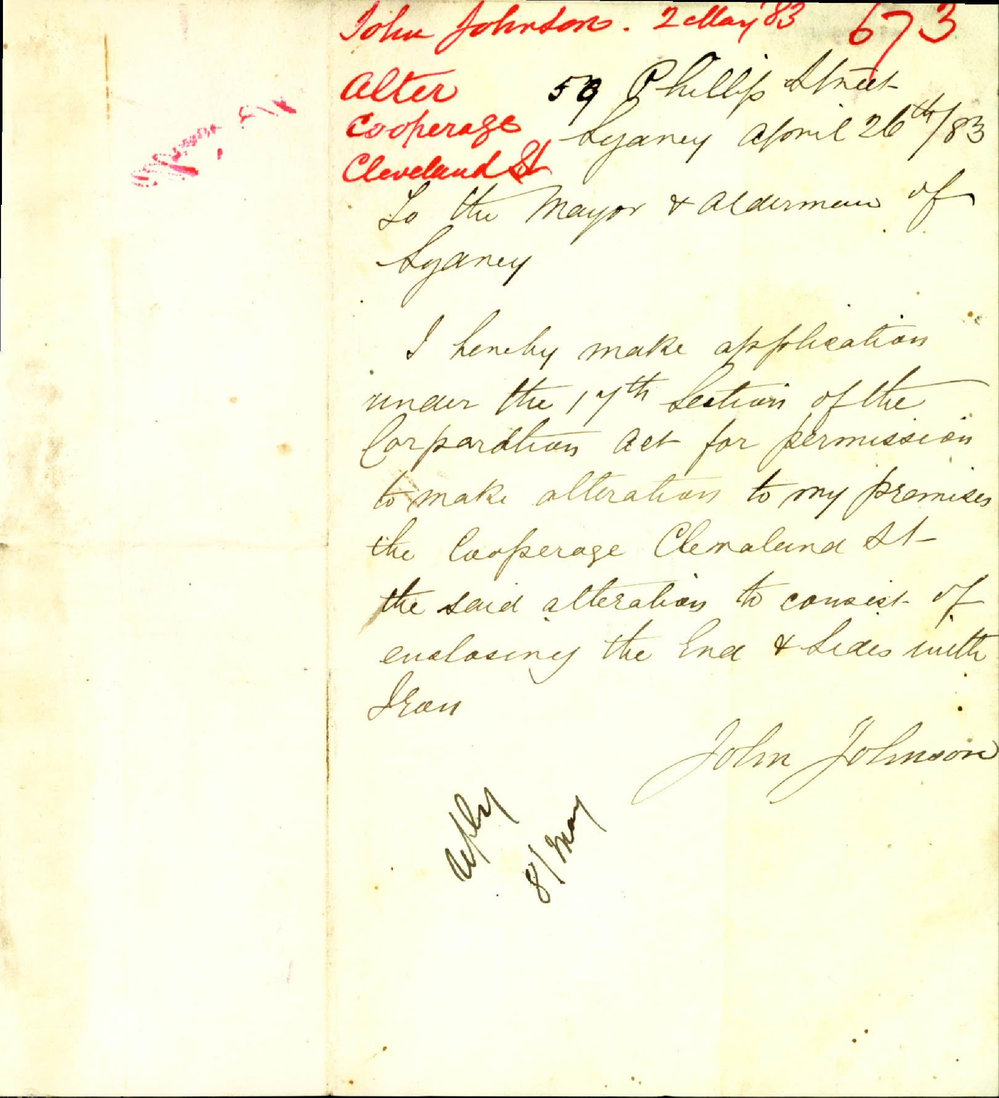 John Johnson. 2 May 83
673
Alter
Cooperage
Cleveland St
59 Phillip Street
Sydney April 26th/83
To the Mayor & Aldermen of
Sydney
I hereby make application
under the 17th Section of the
Corporation Act for permission
to make alteration to my premises
the Cooperage Clemaland St
the said alteration to consist of
enclosing the End & Sides with
Iron
John Johnson
8/May